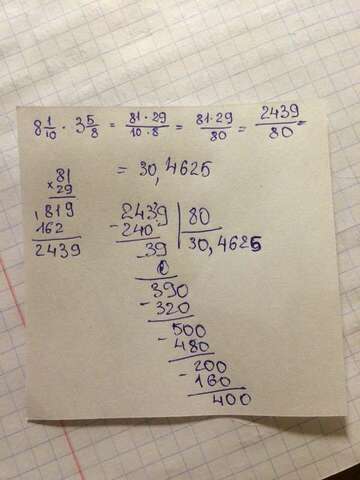 8 1/10 · 3 5/8 = 81·29/10·8 = 81·29/80 = 2439/80 =
= 30,4625
×81
29
819
162
2439
2439 | 80
-240 | 30,4625
-39
0
390
-320
-500
480
-200
160
400